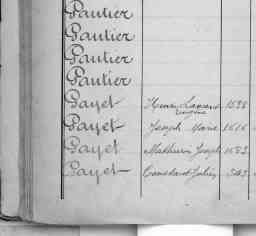 Pautier
Pautier
Pautier
Pautier
Gayet Henri Laurent 1638
Gayet Joseph Marie 1616
Gayet Mathurin Joseph 1682
Gayet Constant Julien 343